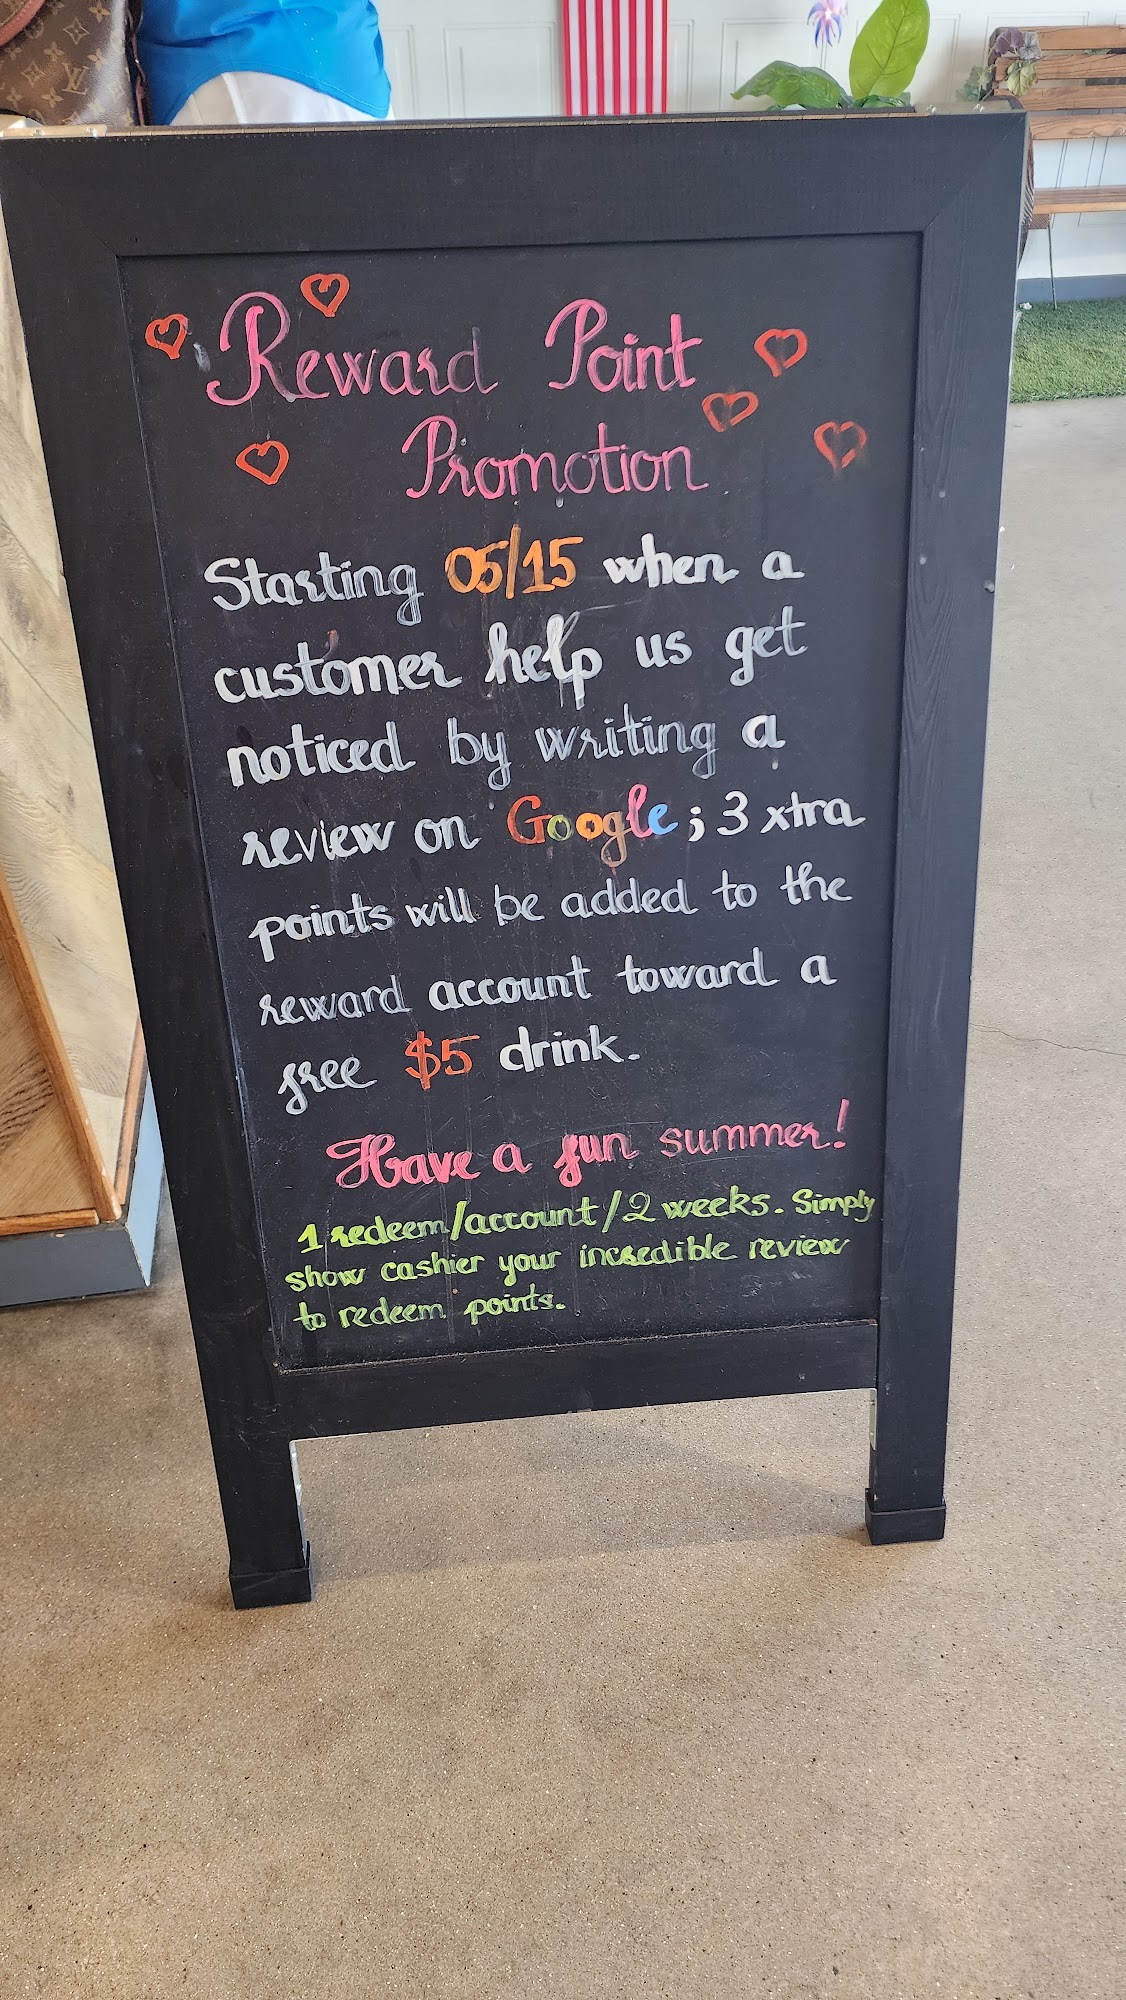 Reward Point
Promotion
Starting 05/15 when a
customer help us get
noticed by writing a
review on Google; 3 xtra
points will be added to the
reward account toward a
free $5 drink.
Have a fun summer!
1 redeem/account/2 weeks. Simply
show cashier your incredible review
to redeem points.